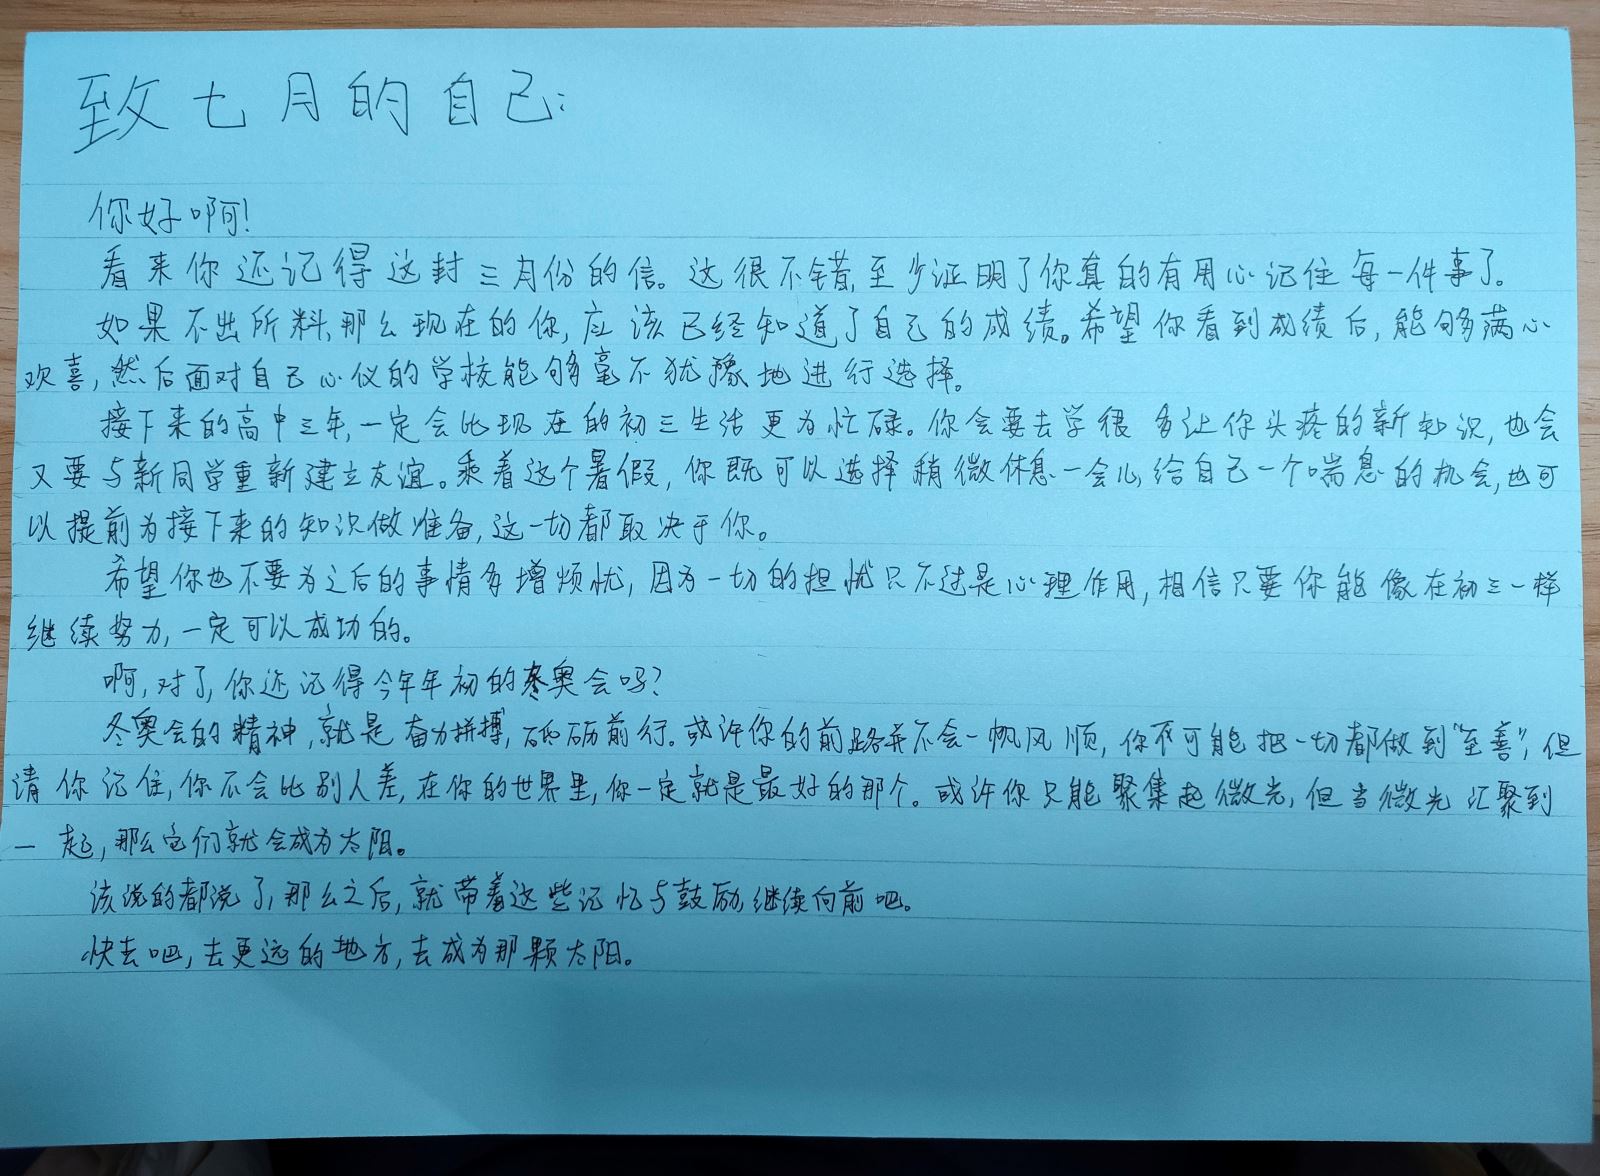 致七月的自己：
你好啊！
看来你还记得这封三月份的信。这很不错，至少证明了你真的有用心记住每一件事了。
如果不出所料，那么现在的你，应该已经知道了自己的成绩。希望你看到成绩后，能够满心
欢喜，然后面对自己心仪的学校能够毫不犹豫地进行选择。
接下来的高中三年，一定会比现在的初三生活更为忙碌。你会要去学很多让你头疼的新知识，也会
又要与新同学重新建立友谊。乘着这个暑假，你既可以选择稍微休息一会儿，给自己一个喘息的机会，也可
以提前为接下来的知识做准备，这一切都取决于你。
希望你也不要为之后的事情多增烦忧，因为一切的担忧只不过是心理作用，相信只要你能像在初三一样
继续努力，一定可以成功的。
啊，对了，你还记得今年年初的冬奥会吗？
冬奥会的精神，就是奋力拼搏，砥砺前行。或许你的前路并不会一帆风顺，你不可能把一切都做到“至善”，但
请你记住，你不会比别人差，在你的世界里，你一定就是最好的那个。或许你只能聚集起微光，但当微光汇聚到
一起，那么它们就会成为太阳。
该说的都说了，那么之后，就带着这些记忆与鼓励，继续向前吧。
快去吧，去更远的地方，去成为那颗太阳。